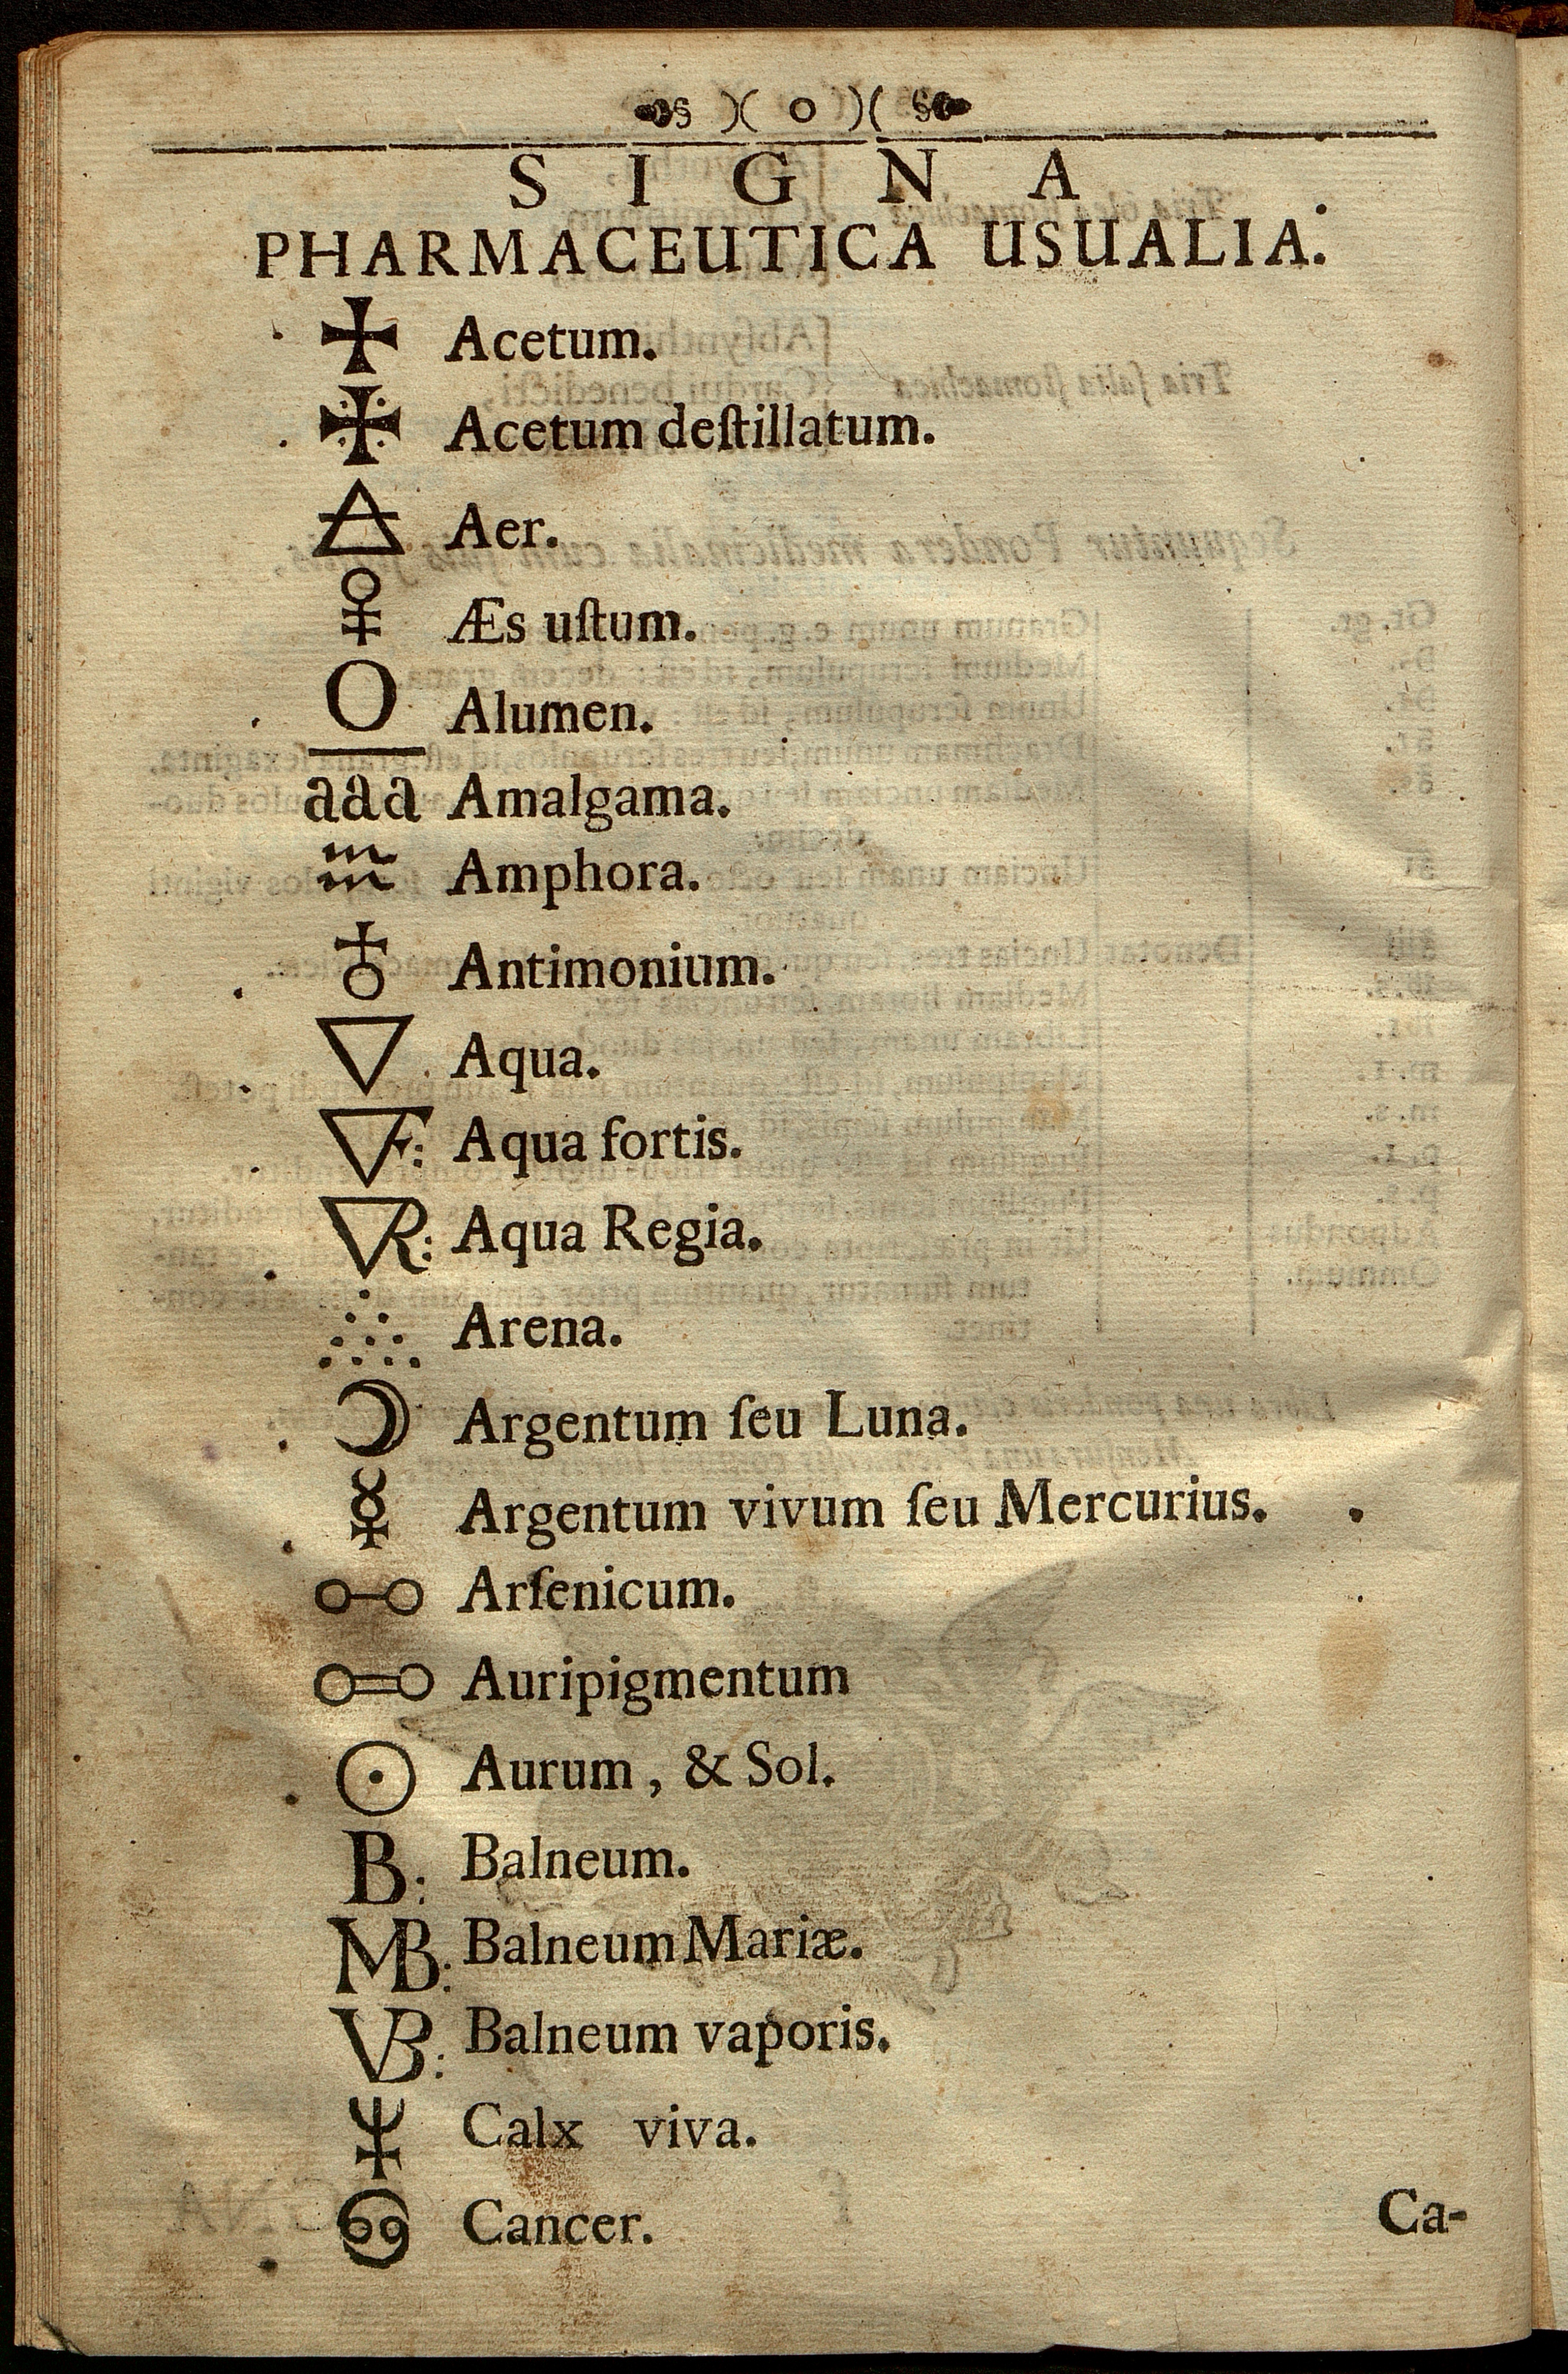 SIGNA
PHARMACEUTICA USUALIA.
Acetum.
Acetum deſtillatum.
Aer.
Æs uſtum.
Alumen.
aaa Amalgama.
Amphora.
Antimonium.
Aqua.
F: Aqua fortis.
R: Aqua Regia.
Arena.
Argentum ſeu Luna.
Argentum vivum ſeu Mercurius.
Arſenicum.
Auripigmentum
Aurum, & Sol.
B: Balneum.
MB: Balneum Mariæ.
VB: Balneum vaporis.
Calx viva.
Cancer.
Ca-